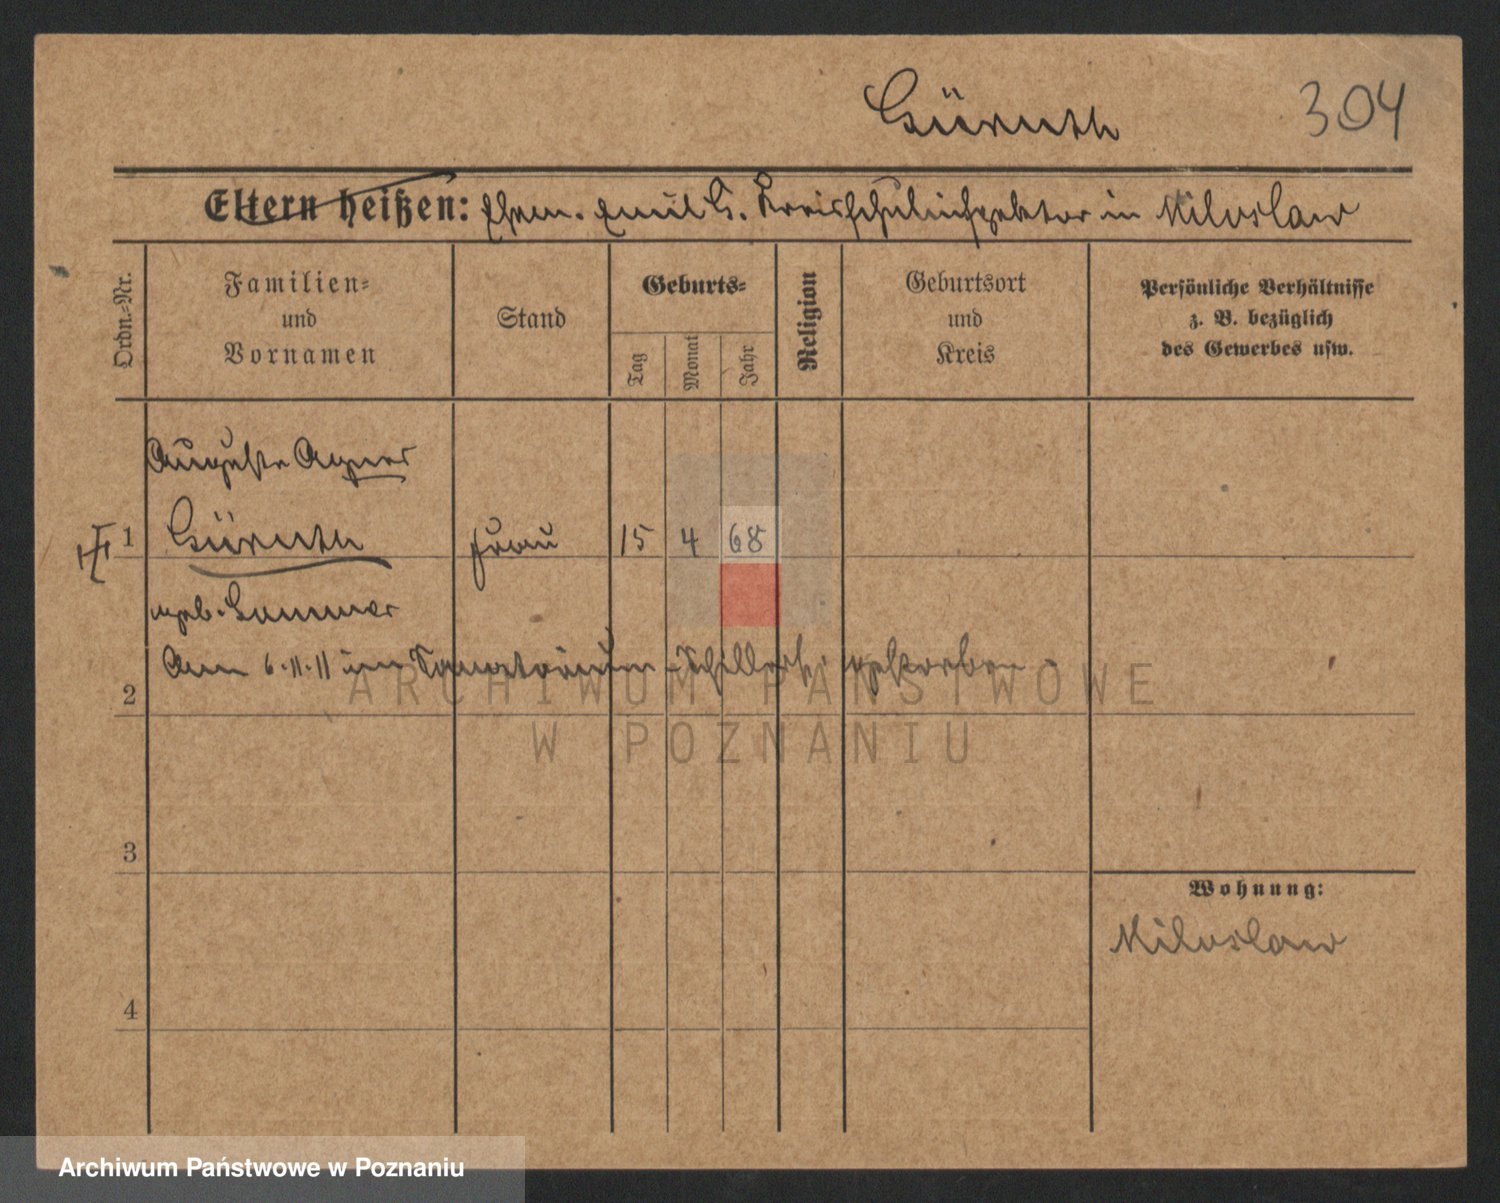 304
Eltern heißen: Ehem. Emil G. Kreisschulinspektor in Miloslaw
Ordn.-Nr.
Familien-
und
Vornamen
Stand
Geburts-
Tag
Monat
Jahr
Religion
Geburtsort
und
Kreis
Persönliche Verhältnisse
z. B. bezüglich
des Gewerbes usw.
Auguste Agnes
1 Frau 15 4 68
geb.
Am 6.11.11 im Sanatorium gestorben
2
ARCHIWUM PAŃSTWOWE
W POZNANIU
3
Wohnung:
Miloslaw
4
Archiwum Państwowe w Poznaniu